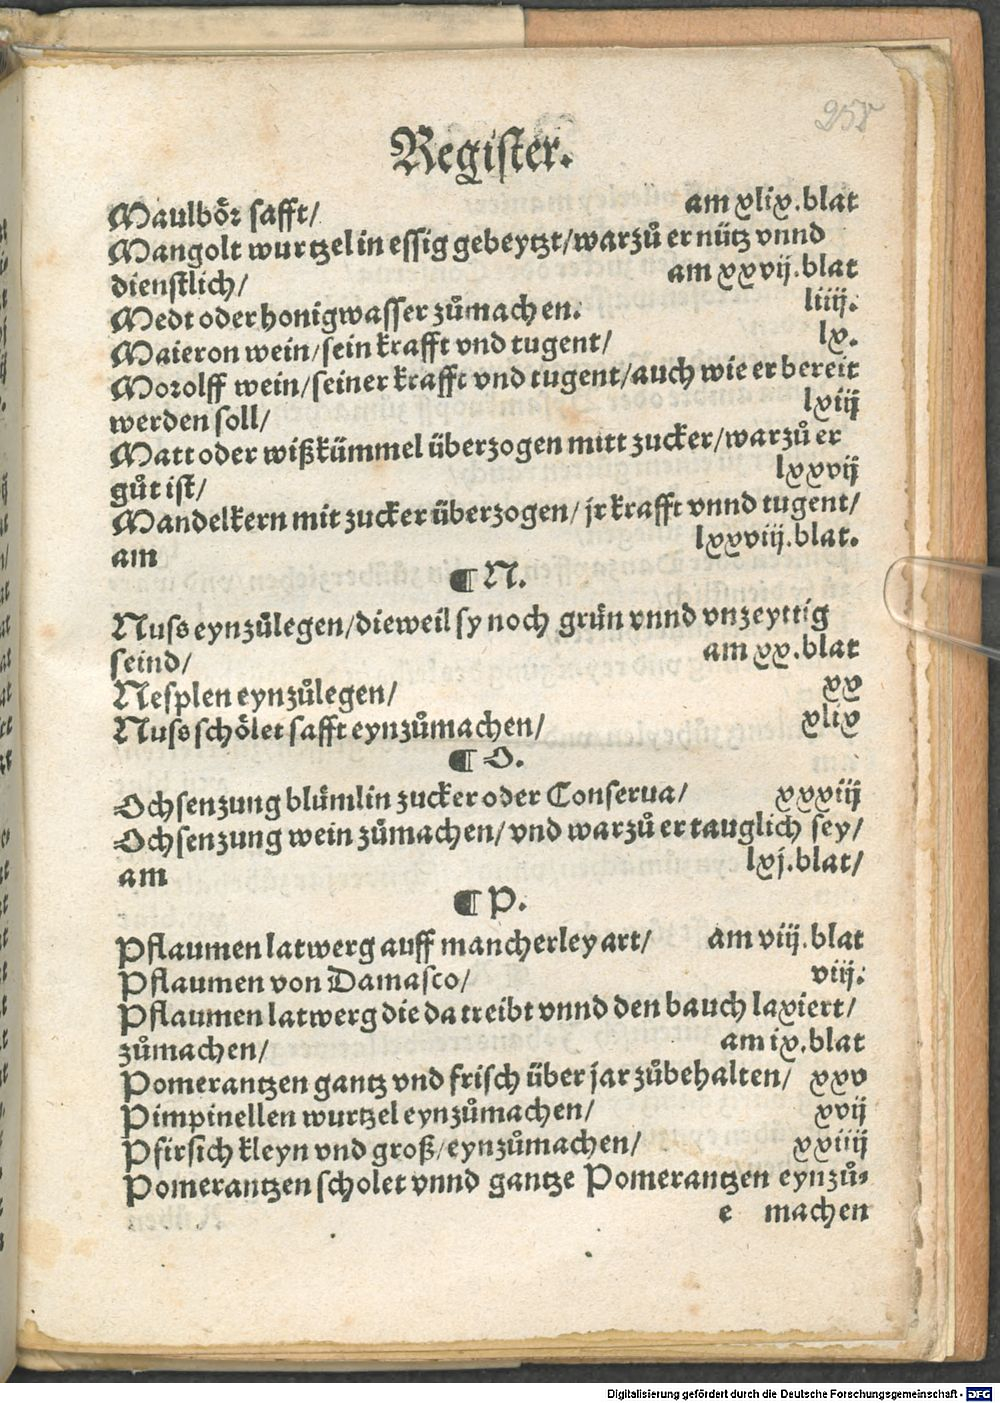 258
Register.
Maulbör safft/ am xlix.blat
Mangolt wurtzel in essig gebeytzt/warzů er nütz vnnd
dienstlich/ am xxvij.blat
Medt oder honigwasser zůmachen. liiij.
Maieron wein/sein krafft vnd tugent/ lx.
Morolff wein/seiner krafft vnd tugent/auch wie er bereit
werden soll/ lxiij
Matt oder wißkümmel überzogen mitt zucker/warzů er
gůt ist/ lxxvij
Mandelkern mit zucker überzogen/ jr krafft vnnd tugent/
am lxxviij.blat.
¶ N.
Nuss eynzůlegen/dieweil sy noch grün vnnd vnzeyttig
seind/ am xx.blat
Nesplen eynzůlegen/ xx
Nuss schölet safft eynzůmachen/ xlix
¶ O.
Ochsenzung blümlin zucker oder Conserua/ xxxiij
Ochsenzung wein zůmachen/ vnd warzů er tauglich sey/
am lxj.blat/
¶ P.
Pflaumen latwerg auff mancherley art/ am viij.blat
Pflaumen von Damasco/ viij.
Pflaumen latwerg die da treibt vnnd den bauch laxiert/
zůmachen/ am ix.blat
Pomerantzen gantz vnd frisch über jar zůbehalten/ xxv
Pimpinellen wurtzel eynzůmachen/ xvij
Pfirsich kleyn vnd groß/eynzůmachen/ xxiiij
Pomerantzen scholet vnnd gantze Pomerantzen eynzů⸗
e machen
Digitalisierung gefördert durch die Deutsche Forschungsgemeinschaft - DFG